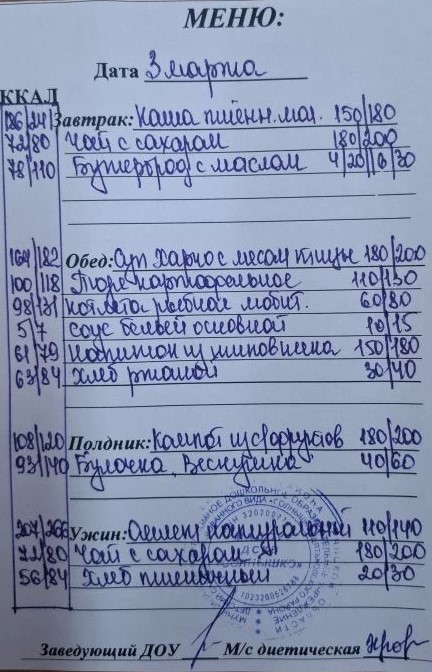 МЕНЮ:
Дата 3 марта
ККАЛ
186/241 Завтрак: Каша пшенн. мол. 150/180
72/80 Чай с сахаром 180/200
78/110 Бутерброд с маслом 4/20//6/30
164/182 Обед: Суп Харчо с мясом птицы 180/200
100/118 Пюре картофельное 110/130
98/131 котлета рыбная любит. 60/80
5/7 соус белый основной 10/15
61/79 напиток из шиповника 150/180
63/84 Хлеб ржаной 30/40
108/120 Полдник: Компот из с/фруктов 180/200
93/140 Булочка Веснушка 40/60
207/266 Ужин: Омлет натуральный 110/140
72/80 Чай с сахаром 180/200
56/84 Хлеб пшеничный 20/30
Заведующий ДОУ М/с диетическая